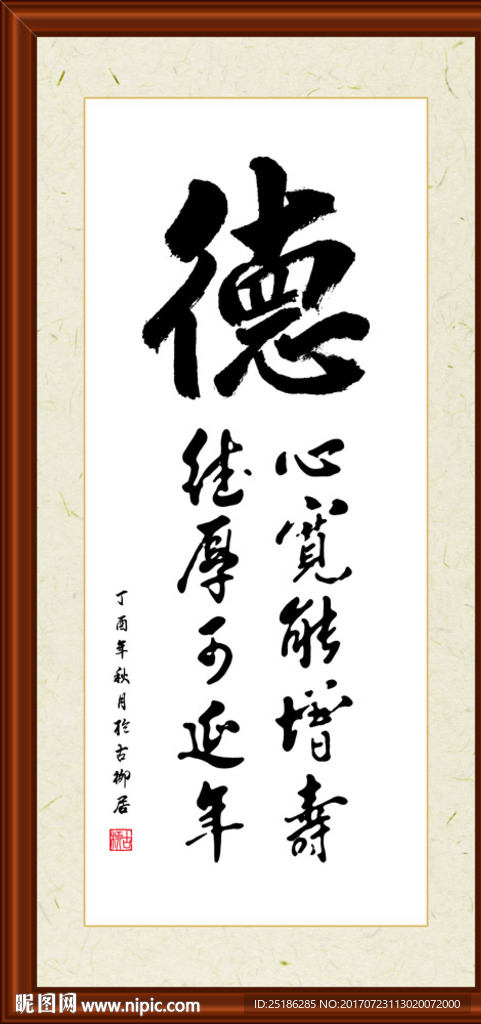 德
心寬能增壽
德厚可延年
丁酉年秋月於古柳居
昵图网 www.nipic.com
ID:25186285 NO:20170723113020072000